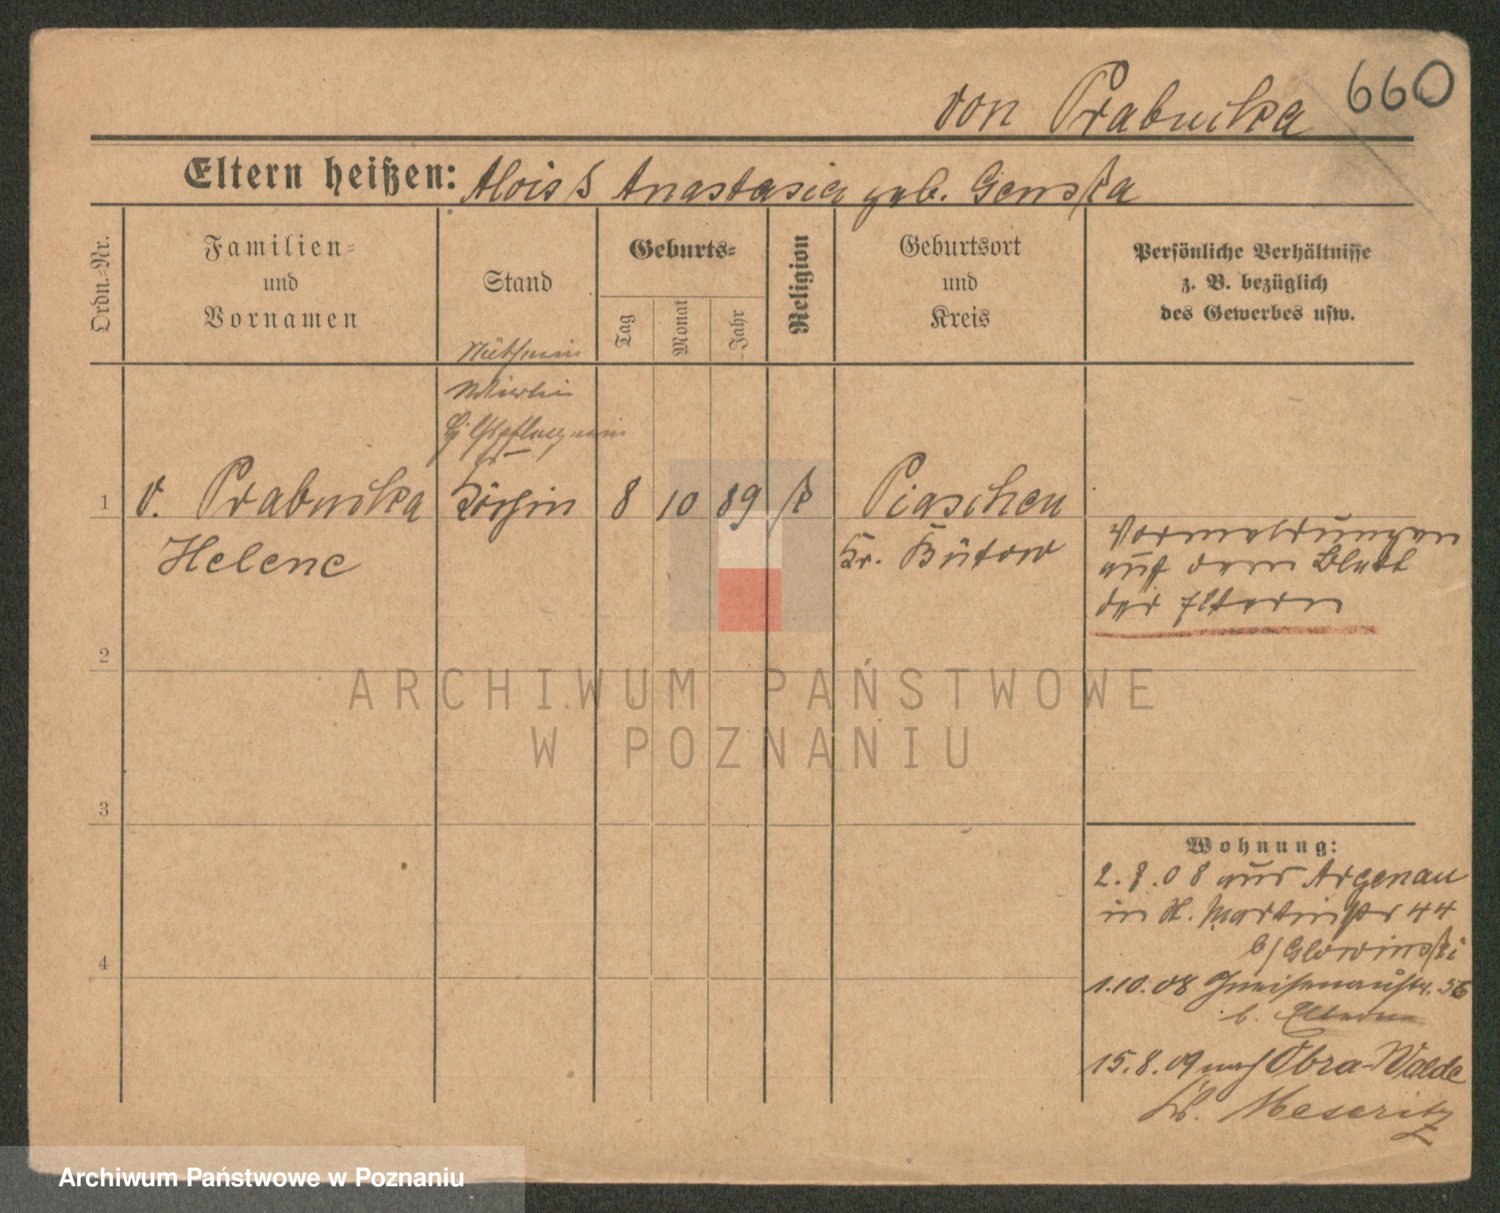 von Prabucka 660
Eltern heißen: Alois & Anastasia geb. Genska
Ordn.-Nr.
Familien-
und
Vornamen
Stand
Geburts-
Tag
Monat
Jahr
Religion
Geburtsort
und
Kreis
Persönliche Verhältnisse
z. B. bezüglich
des Gewerbes usw.
Näherin
1 v. Prabucka Köchin 8 10 89 k Piaschen
Helene Kr. Bütow
Vormeldungen
auf dem Blatt
der Eltern
2
3
4
Wohnung:
2.7.08 aus Argenau
in St. Martinstr 44
b/Glowinski
1.10.08 Gneisenaustr. 56
b. Eltern
15.8.09 nach Obra-Walde
Kr. Meseritz
ARCHIWUM PAŃSTWOWE
W POZNANIU
Archiwum Państwowe w Poznaniu